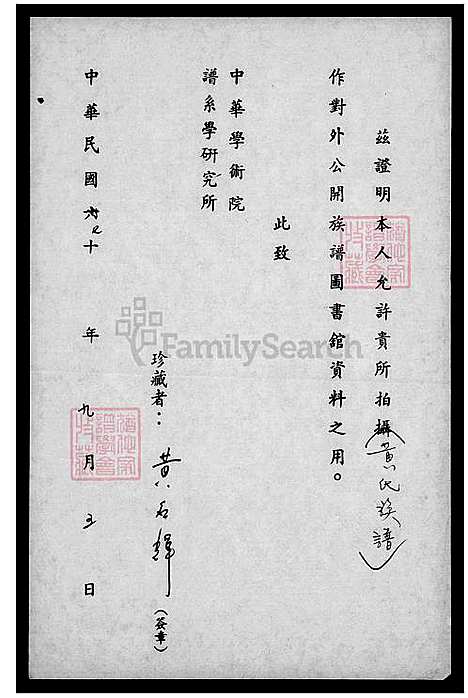 茲證明本人允許貴所拍攝(黃氏族譜)
作對外公開族譜圖書館資料之用。
此致
中華學術院
譜系學研究所
珍藏者：黃石輝（簽章）
中華民國七十年九月五日
FamilySearch